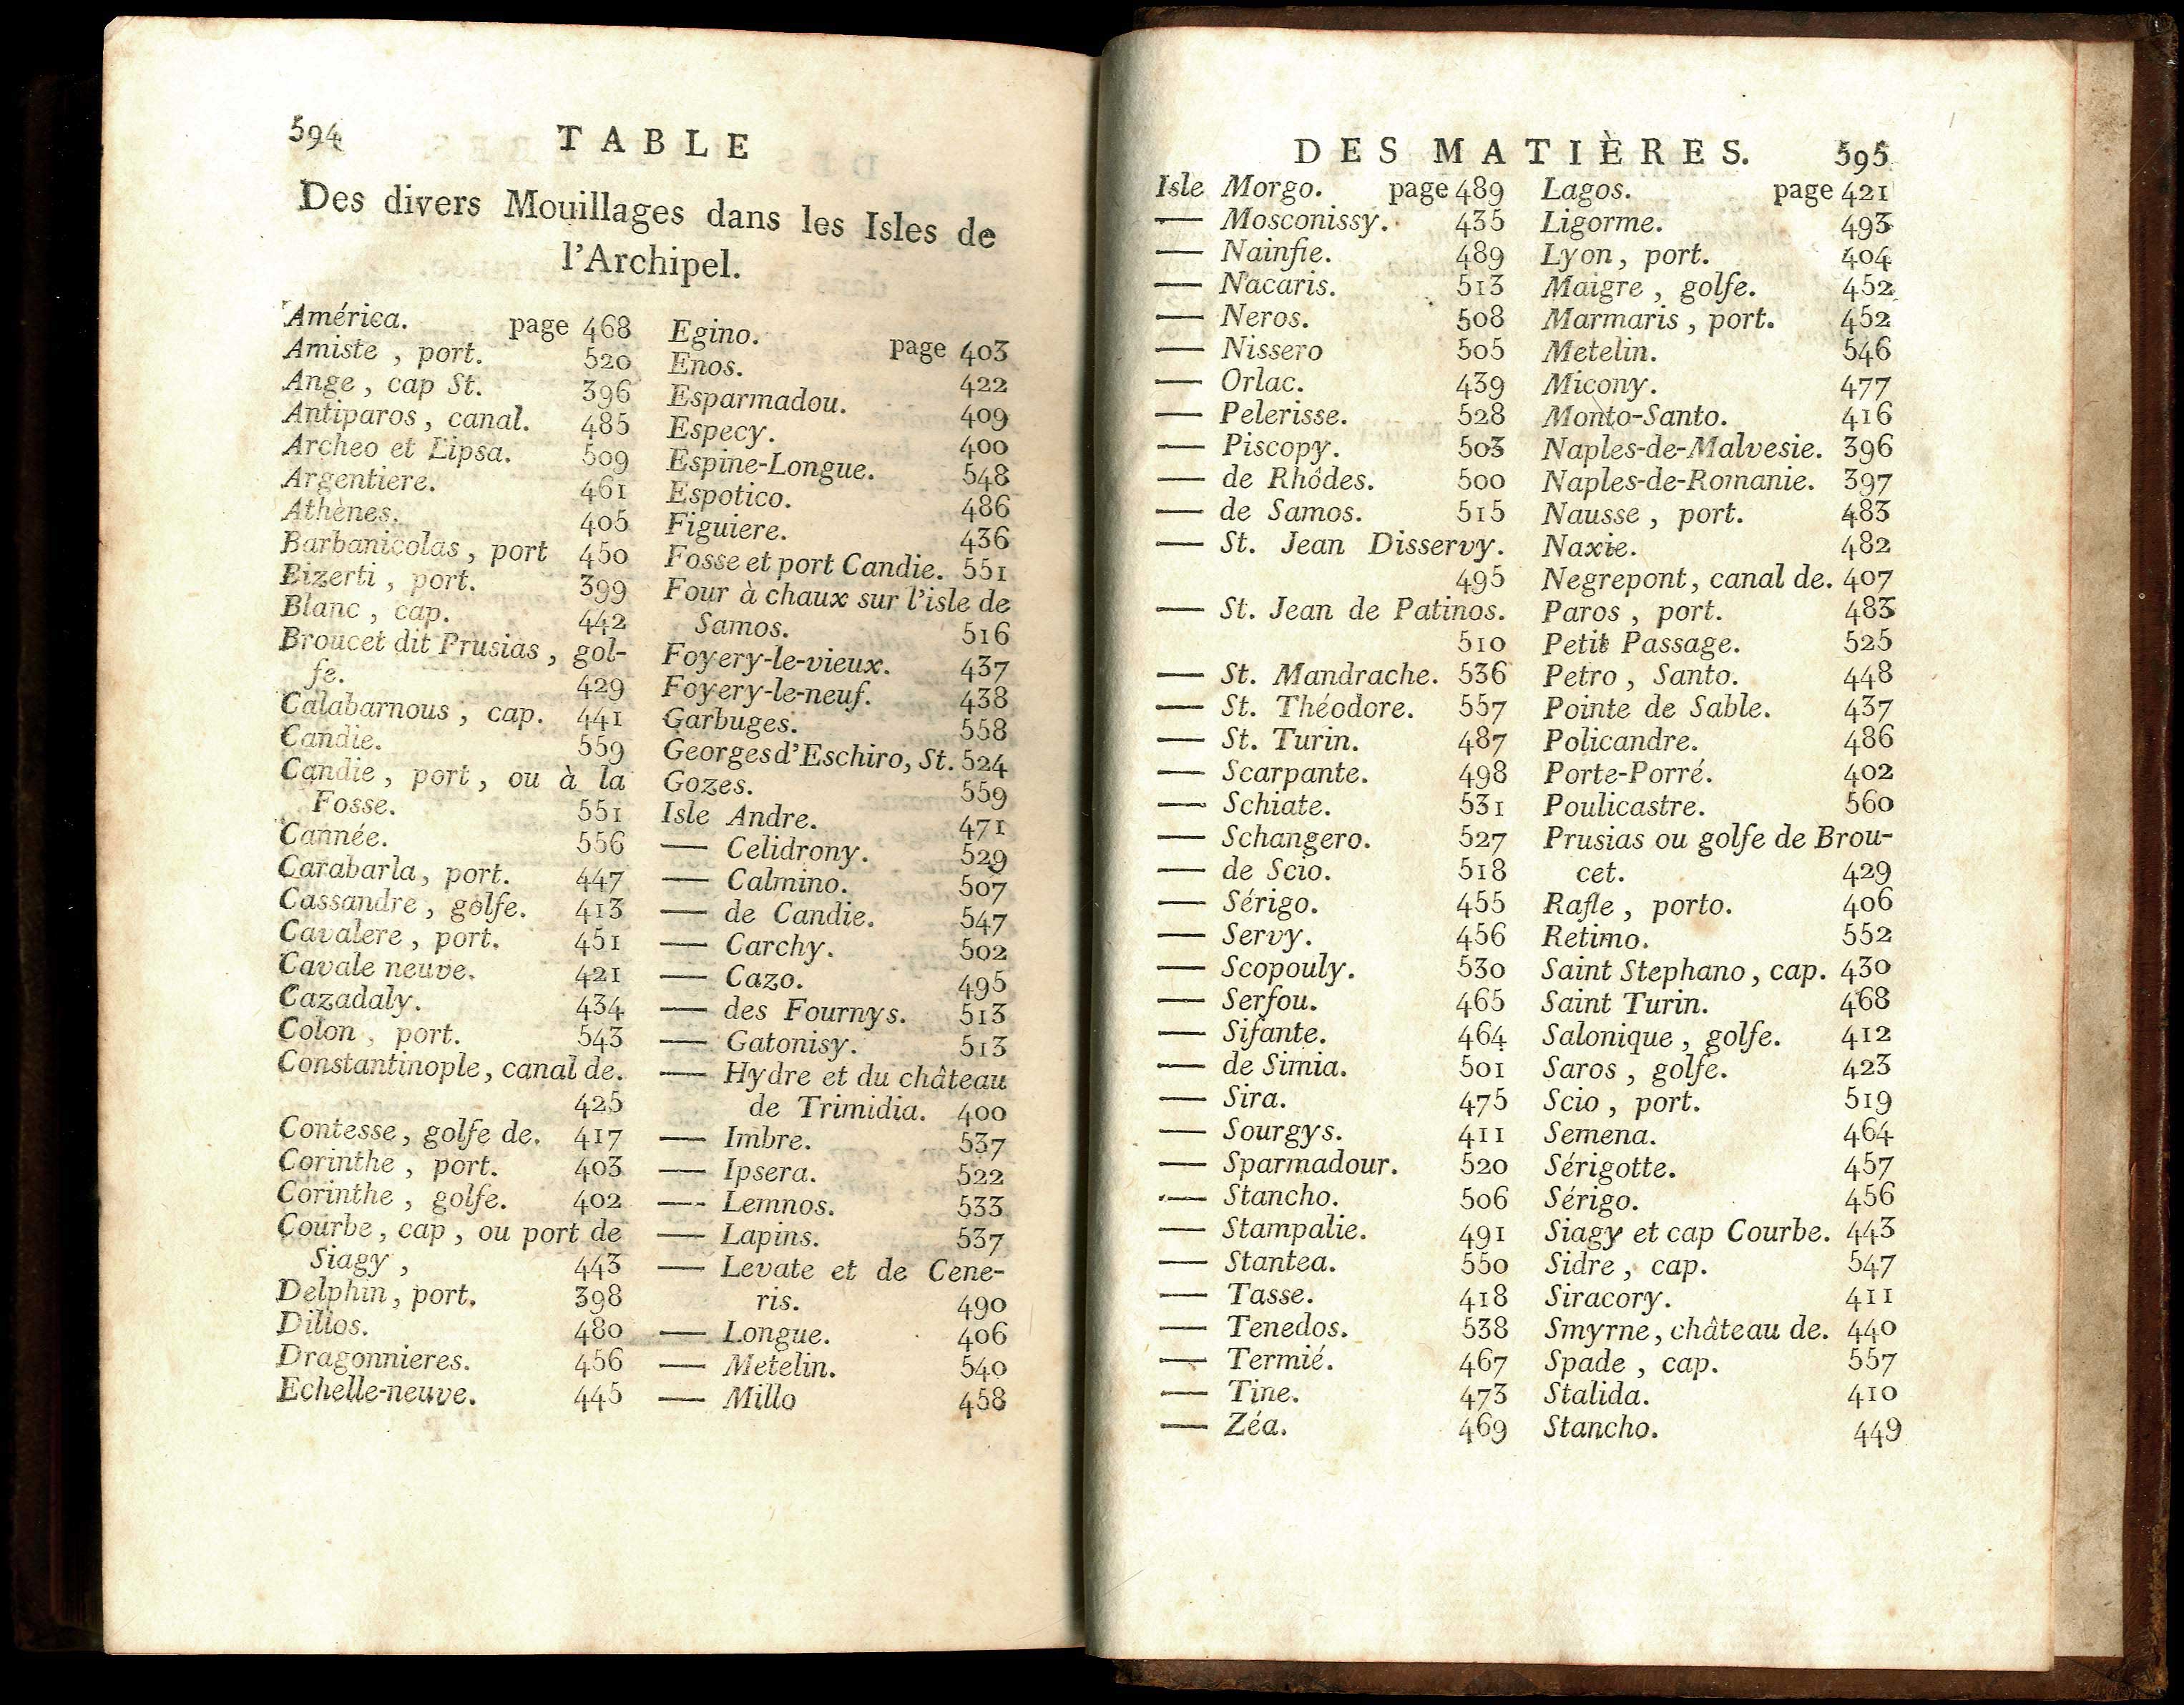 594
TABLE
Des divers Mouillages dans les Isles de
l'Archipel.
América. page 468
Amiste , port. 520
Ange , cap St. 396
Antiparos , canal. 485
Archeo et Lipsa. 509
Argentiere. 461
Athènes. 405
Barbanicolas , port 450
Bizerti , port. 399
Blanc , cap. 442
Broucet dit Prusias , gol-
fe. 429
Calabarnous , cap. 441
Candie. 559
Candie , port , ou à la
Fosse. 551
Cannée. 556
Carabarla , port. 447
Cassandre , golfe. 413
Cavalere , port. 451
Cavale neuve. 421
Cazadaly. 434
Colon , port. 543
Constantinople , canal de.
425
Contesse , golfe de. 417
Corinthe , port. 403
Corinthe , golfe. 402
Courbe , cap , ou port de
Siagy , 443
Delphin , port. 398
Dillos. 480
Dragonnieres. 456
Echelle-neuve. 445
Egino. page 403
Enos. 422
Esparmadou. 409
Especy. 400
Espine-Longue. 548
Espotico. 486
Figuiere. 436
Fosse et port Candie. 551
Four à chaux sur l'isle de
Samos. 516
Foyery-le-vieux. 437
Foyery-le-neuf. 438
Garbuges. 558
Georges d'Eschiro, St. 524
Gozes. 559
Isle Andre. 471
— Celidrony. 529
— Calmino. 507
— de Candie. 547
— Carchy. 502
— Cazo. 495
— des Fournys. 513
— Gatonisy. 513
— Hydre et du château
de Trimidia. 400
— Imbre. 537
— Ipsera. 522
— Lemnos. 533
— Lapins. 537
— Levate et de Cene-
ris. 490
— Longue. 406
— Metelin. 540
— Millo 458
DES MATIÈRES. 595
Isle Morgo. page 489
— Mosconissy. 435
— Nainfie. 489
— Nacaris. 513
— Neros. 508
— Nissero 505
— Orlac. 439
— Pelerisse. 528
— Piscopy. 503
— de Rhôdes. 500
— de Samos. 515
— St. Jean Disservy.
495
— St. Jean de Patinos.
510
— St. Mandrache. 536
— St. Théodore. 557
— St. Turin. 487
— Scarpante. 498
— Schiate. 531
— Schangero. 527
— de Scio. 518
— Sérigo. 455
— Servy. 456
— Scopouly. 530
— Serfou. 465
— Sifante. 464
— de Simia. 501
— Sira. 475
— Sourgys. 411
— Sparmadour. 520
— Stancho. 506
— Stampalie. 491
— Stantea. 550
— Tasse. 418
— Tenedos. 538
— Termié. 467
— Tine. 473
— Zéa. 469
Lagos. page 421
Ligorme. 493
Lyon , port. 404
Maigre , golfe. 452
Marmaris , port. 452
Metelin. 546
Micony. 477
Monto-Santo. 416
Naples-de-Malvesie. 396
Naples-de-Romanie. 397
Nausse , port. 483
Naxie. 482
Negrepont, canal de. 407
Paros , port. 483
Petit Passage. 525
Petro , Santo. 448
Pointe de Sable. 437
Policandre. 486
Porte-Porré. 402
Poulicastre. 560
Prusias ou golfe de Brou-
cet. 429
Rafle , porto. 406
Retimo. 552
Saint Stephano , cap. 430
Saint Turin. 468
Salonique , golfe. 412
Saros , golfe. 423
Scio , port. 519
Semena. 464
Sérigotte. 457
Sérigo. 456
Siagy et cap Courbe. 443
Sidre , cap. 547
Siracory. 411
Smyrne, château de. 440
Spade , cap. 557
Stalida. 410
Stancho. 449